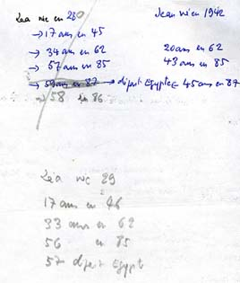 Léa née en 280
Jean né en 1942
→ 17 ans en 45
→ 34 ans en 62
20 ans en 62
→ 57 ans en 85
43 ans en 85
→ 59 ans en 87 → départ Egypte 45 ans en 87
→ 58 en 86
Léa née 29
17 ans en 46
33 ans en 62
56 en 85
57 départ Egypt